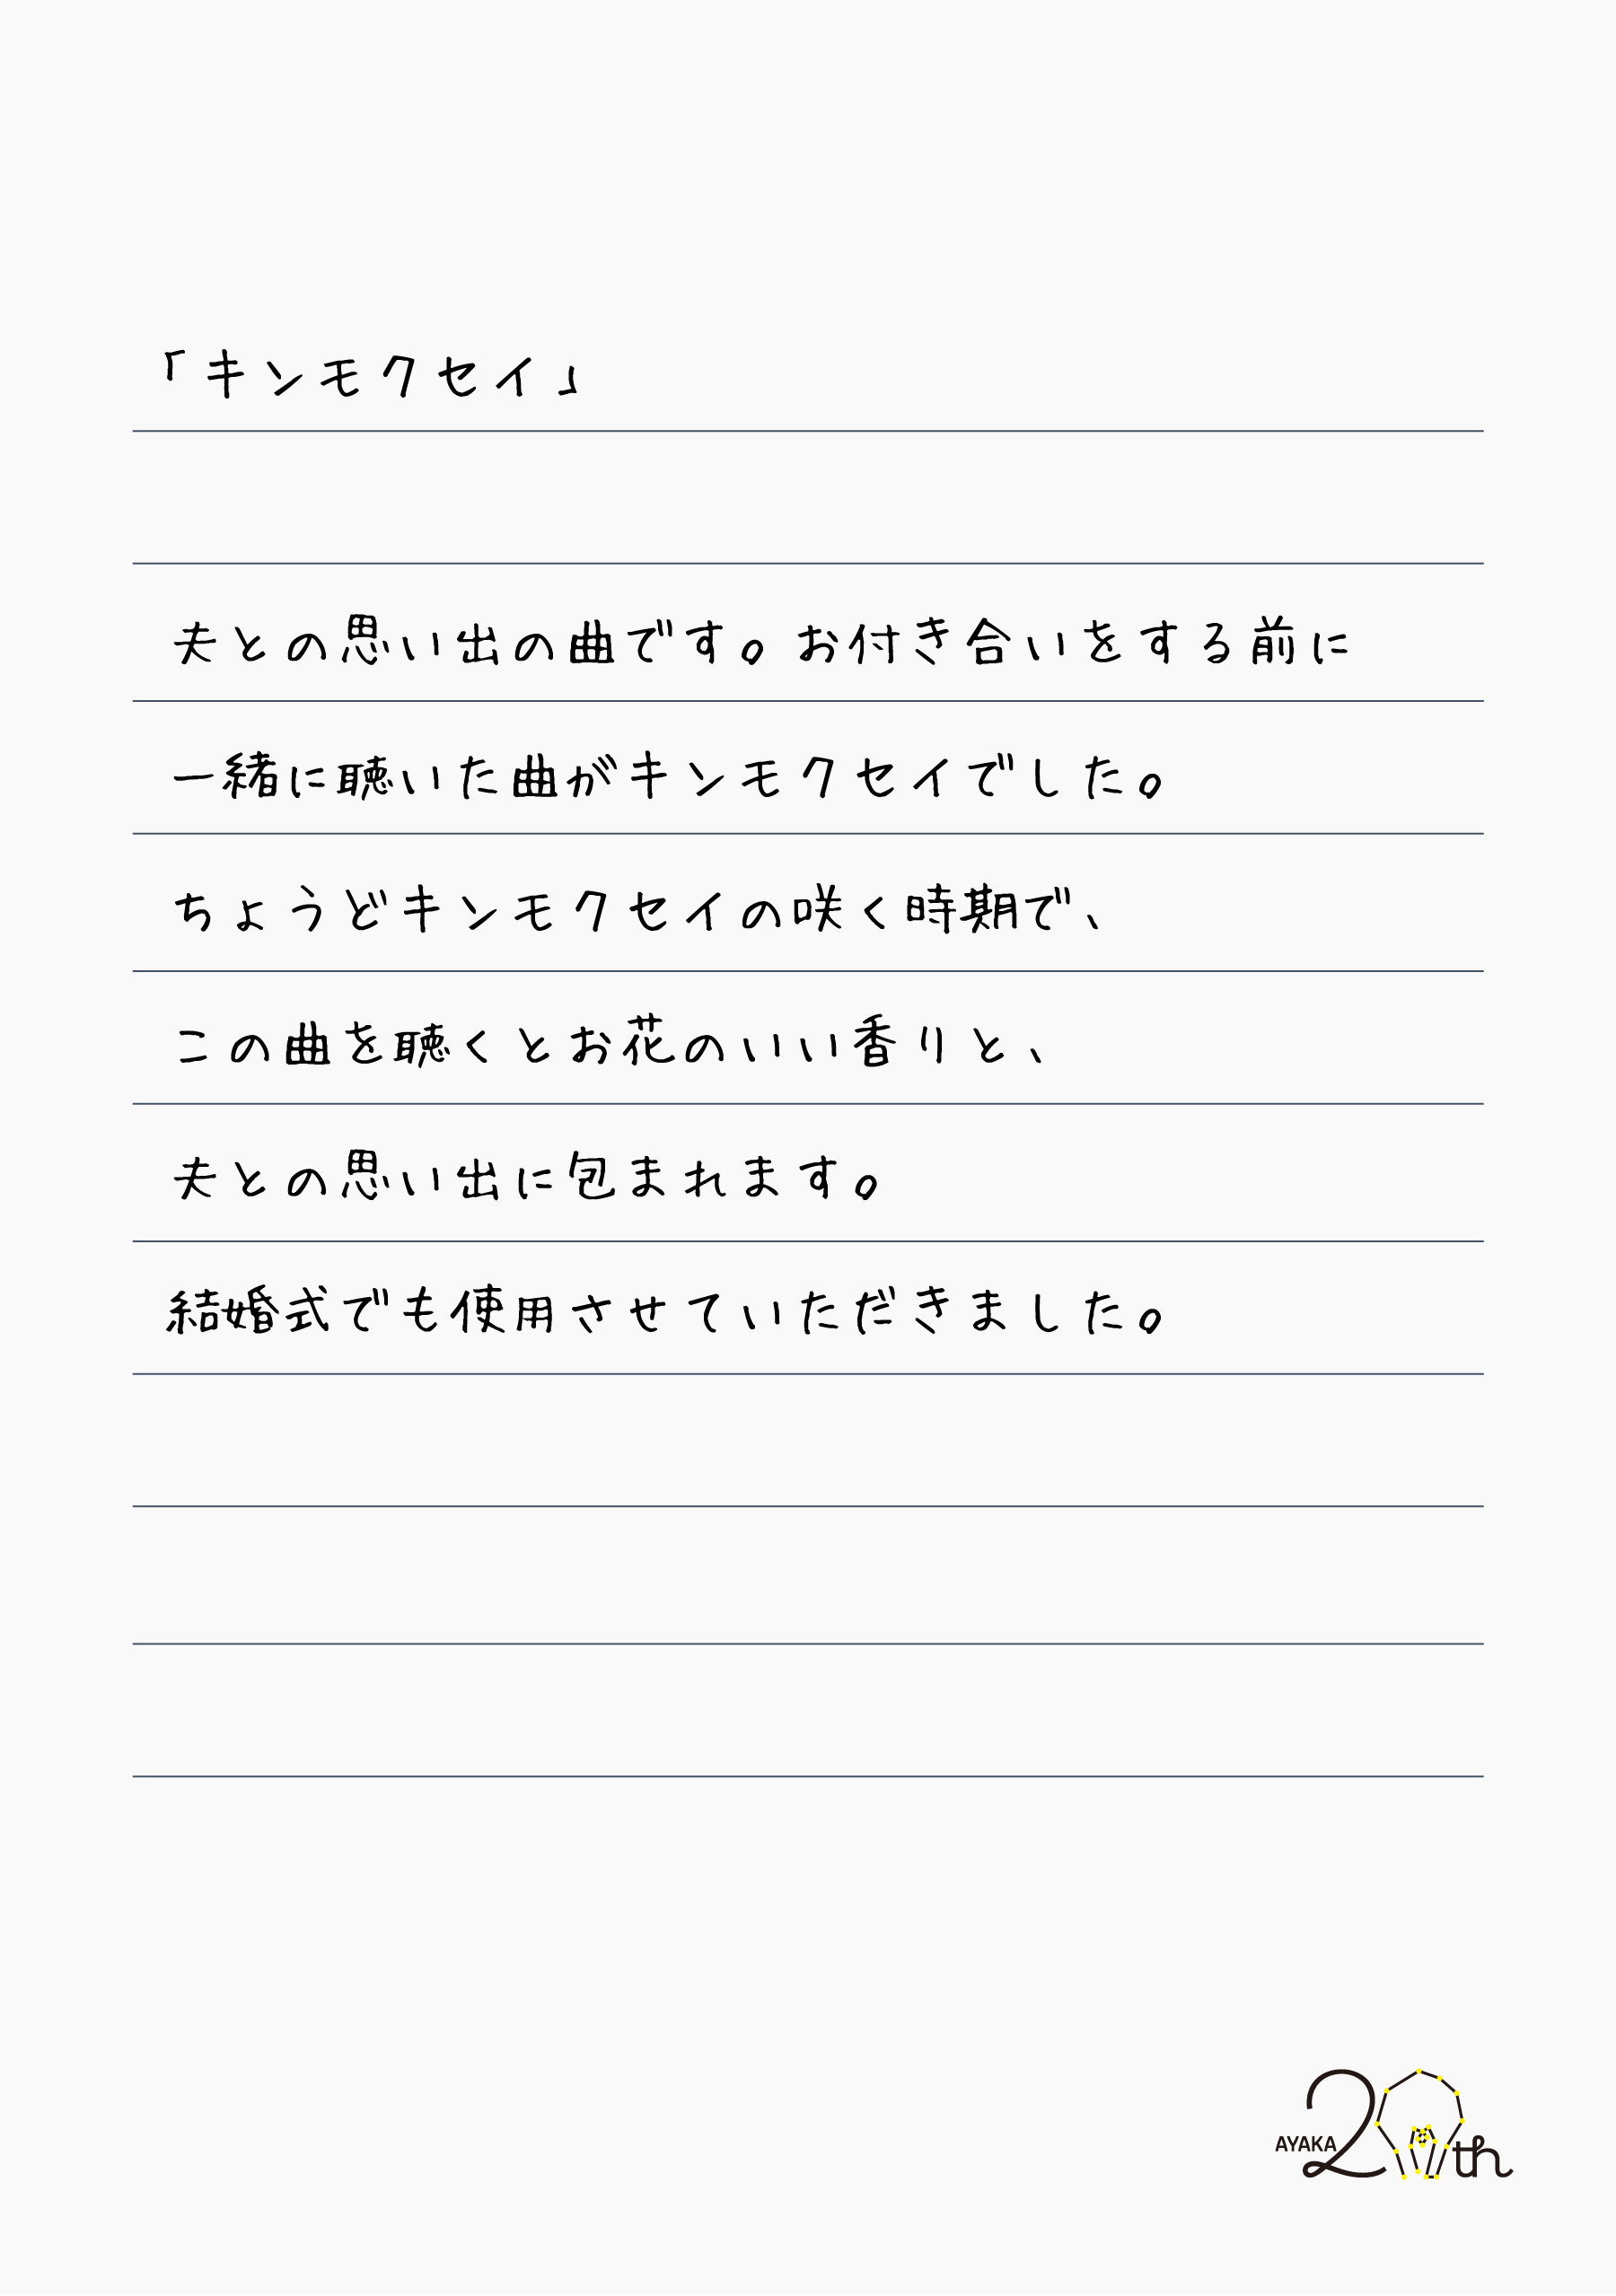 「キンモクセイ」
夫との思い出の曲です。お付き合いをする前に
一緒に聴いた曲がキンモクセイでした。
ちょうどキンモクセイの咲く時期で、
この曲を聴くとお花のいい香りと、
夫との思い出に包まれます。
結婚式でも使用させていただきました。
AYAKA 20th